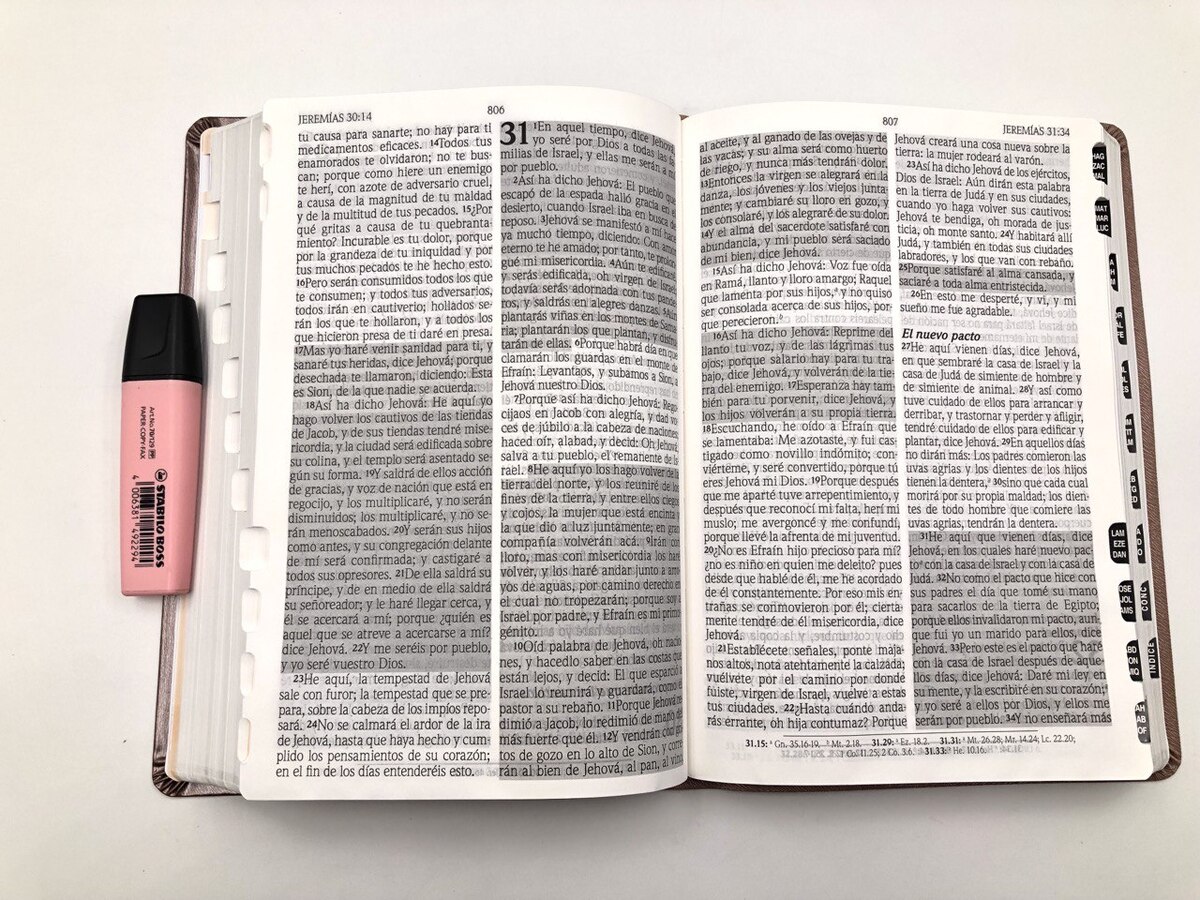 JEREMÍAS 30:14
806
tu causa para sanarte; no hay para ti
medicamentos eficaces. 14Todos tus
enamorados te olvidaron; no te bus-
can; porque como hiere un enemigo
te herí, con azote de adversario cruel,
a causa de la magnitud de tu maldad
y de la multitud de tus pecados. 15¿Por
qué gritas a causa de tu quebranta-
miento? Incurable es tu dolor, porque
por la grandeza de tu iniquidad y por
tus muchos pecados te he hecho esto.
16Pero serán consumidos todos los que
te consumen; y todos tus adversarios,
todos irán en cautiverio; hollados se-
rán los que te hollaron, y a todos los
que hicieron presa de ti daré en presa.
17Mas yo haré venir sanidad para ti, y
sanaré tus heridas, dice Jehová; porque
desechada te llamaron, diciendo: Esta
es Sion, de la que nadie se acuerda.
18Así ha dicho Jehová: He aquí yo
hago volver los cautivos de las tiendas
de Jacob, y de sus tiendas tendré mise-
ricordia, y la ciudad será edificada sobre
su colina, y el templo será asentado se-
gún su forma. 19Y saldrá de ellos acción
de gracias, y voz de nación que está en
regocijo, y los multiplicaré, y no serán
disminuidos; los multiplicaré, y no se-
rán menoscabados. 20Y serán sus hijos
como antes, y su congregación delante
de mí será confirmada; y castigaré a
todos sus opresores. 21De ella saldrá su
príncipe, y de en medio de ella saldrá
su señoreador; y le haré llegar cerca, y
él se acercará a mí; porque ¿quién es
aquel que se atreve a acercarse a mí?
dice Jehová. 22Y me seréis por pueblo,
y yo seré vuestro Dios.
23He aquí, la tempestad de Jehová
sale con furor; la tempestad que se pre-
para, sobre la cabeza de los impíos repo-
sará. 24No se calmará el ardor de la ira
de Jehová, hasta que haya hecho y cum-
plido los pensamientos de su corazón;
en el fin de los días entenderéis esto.
31 1En aquel tiempo, dice Jehová,
yo seré por Dios a todas las fa-
milias de Israel, y ellas me serán a mí
por pueblo.
2Así ha dicho Jehová: El pueblo que
escapó de la espada halló gracia en el
desierto, cuando Israel iba en busca de
reposo. 3Jehová se manifestó a mí hace
ya mucho tiempo, diciendo: Con amor
eterno te he amado; por tanto, te prolon-
gué mi misericordia. 4Aún te edificaré,
y serás edificada, oh virgen de Israel;
todavía serás adornada con tus pande-
ros, y saldrás en alegres danzas. 5Aún
plantarás viñas en los montes de Sama-
ria; plantarán los que plantan, y disfru-
tarán de ellas. 6Porque habrá día en que
clamarán los guardas en el monte de
Efraín: Levantaos, y subamos a Sion, a
Jehová nuestro Dios.
7Porque así ha dicho Jehová: Rego-
cijaos en Jacob con alegría, y dad vo-
ces de júbilo a la cabeza de naciones;
haced oír, alabad, y decid: Oh Jehová,
salva a tu pueblo, el remanente de Is-
rael. 8He aquí yo los hago volver de la
tierra del norte, y los reuniré de los
fines de la tierra, y entre ellos ciegos
y cojos, la mujer que está encinta y
la que dio a luz juntamente; en gran
compañía volverán acá. 9Irán con
lloro, mas con misericordia los haré
volver, y los haré andar junto a arro-
yos de aguas, por camino derecho en
el cual no tropezarán; porque soy a
Israel por padre, y Efraín es mi primo-
génito.
10Oíd palabra de Jehová, oh nacio-
nes, y hacedlo saber en las costas que
están lejos, y decid: El que esparció a
Israel lo reunirá y guardará, como el
pastor a su rebaño. 11Porque Jehová re-
dimió a Jacob, lo redimió de mano del
más fuerte que él. 12Y vendrán con gri-
tos de gozo en lo alto de Sion, y corre-
rán al bien de Jehová, al pan, al vino,
807
JEREMÍAS 31:34
al aceite, y al ganado de las ovejas y de
las vacas; y su alma será como huerto
de riego, y nunca más tendrán dolor.
13Entonces la virgen se alegrará en la
danza, los jóvenes y los viejos junta-
mente; y cambiaré su lloro en gozo, y
los consolaré, y los alegraré de su dolor.
14Y el alma del sacerdote satisfaré con
abundancia, y mi pueblo será saciado
de mi bien, dice Jehová.
15Así ha dicho Jehová: Voz fue oída
en Ramá, llanto y lloro amargo; Raquel
que lamenta por sus hijos,a y no quiso
ser consolada acerca de sus hijos, por-
que perecieron.b
16Así ha dicho Jehová: Reprime del
llanto tu voz, y de las lágrimas tus
ojos; porque salario hay para tu tra-
bajo, dice Jehová, y volverán de la tie-
rra del enemigo. 17Esperanza hay tam-
bién para tu porvenir, dice Jehová, y
los hijos volverán a su propia tierra.
18Escuchando, he oído a Efraín que
se lamentaba: Me azotaste, y fui cas-
tigado como novillo indómito; con-
viérteme, y seré convertido, porque tú
eres Jehová mi Dios. 19Porque después
que me aparté tuve arrepentimiento, y
después que reconocí mi falta, herí mi
muslo; me avergoncé y me confundí,
porque llevé la afrenta de mi juventud.
20¿No es Efraín hijo precioso para mí?
¿no es niño en quien me deleito? pues
desde que hablé de él, me he acordado
de él constantemente. Por eso mis en-
trañas se conmovieron por él; cierta-
mente tendré de él misericordia, dice
Jehová.
21Establécete señales, ponte maja-
nos altos, nota atentamente la calzada;
vuélvete por el camino por donde
fuiste, virgen de Israel, vuelve a estas
tus ciudades. 22¿Hasta cuándo anda-
rás errante, oh hija contumaz? Porque
Jehová creará una cosa nueva sobre la
tierra: la mujer rodeará al varón.
23Así ha dicho Jehová de los ejércitos,
Dios de Israel: Aún dirán esta palabra
en la tierra de Judá y en sus ciudades,
cuando yo haga volver sus cautivos:
Jehová te bendiga, oh morada de jus-
ticia, oh monte santo. 24Y habitará allí
Judá, y también en todas sus ciudades
labradores, y los que van con rebaño.
25Porque satisfaré al alma cansada, y
saciaré a toda alma entristecida.
26En esto me desperté, y vi, y mi
sueño me fue agradable.
El nuevo pacto
27He aquí vienen días, dice Jehová,
en que sembraré la casa de Israel y la
casa de Judá de simiente de hombre y
de simiente de animal. 28Y así como
tuve cuidado de ellos para arrancar y
derribar, y trastornar y perder y afligir,
tendré cuidado de ellos para edificar y
plantar, dice Jehová. 29En aquellos días
no dirán más: Los padres comieron las
uvas agrias y los dientes de los hijos
tienen la dentera,a 30sino que cada cual
morirá por su propia maldad; los dien-
tes de todo hombre que comiere las
uvas agrias, tendrán la dentera.
31He aquí que vienen días, dice
Jehová, en los cuales haré nuevo pac-
toa con la casa de Israel y con la casa de
Judá. 32No como el pacto que hice con
sus padres el día que tomé su mano
para sacarlos de la tierra de Egipto;
porque ellos invalidaron mi pacto, aun-
que fui yo un marido para ellos, dice
Jehová. 33Pero este es el pacto que haré
con la casa de Israel después de aque-
llos días, dice Jehová: Daré mi ley en
su mente, y la escribiré en su corazón;a
y yo seré a ellos por Dios, y ellos me
serán por pueblo. 34Y no enseñará más
31.15: a Gn. 35.16-19. b Mt. 2.18. 31.29: a Ez. 18.2. 31.31: a Mt. 26.28; Mr. 14.24; Lc. 22.20;
1 Co. 11.25; 2 Co. 3.6. 31.33: a He. 10.16.
HAG
ZAC
MAL
MAT
MAR
LUC
LAM
EZE
DAN
CONC
INDICE
STABILO BOSS
Art.-No. 70/129
PAPER COPY FAX
4 006381 492294